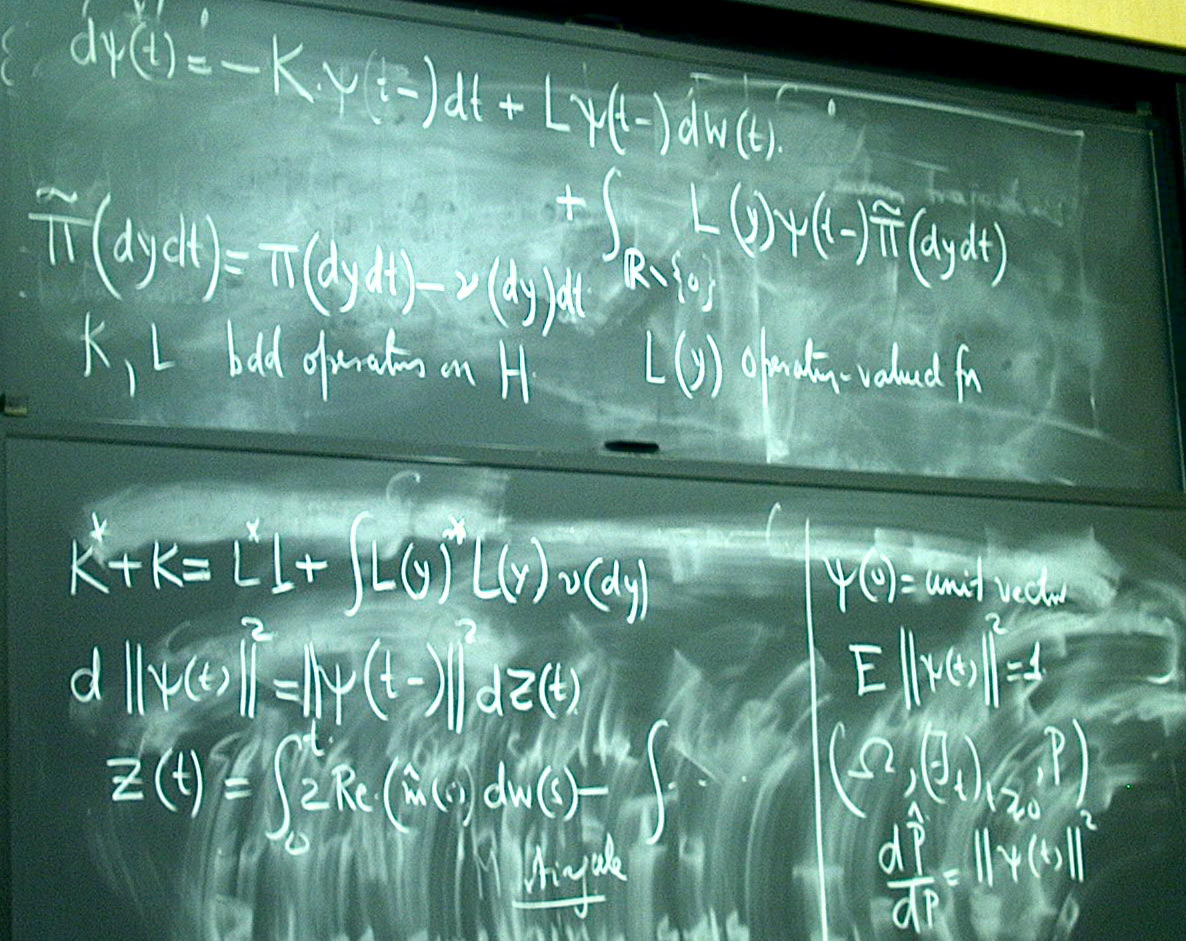 dψ(t) = −K·ψ(t−)dt + Lψ(t−)dW(t).
+ ∫_{ℝ∖{0}} L(y)ψ(t−)π̃(dydt)
π̃(dydt) = π(dydt) − ν(dy)dt
K, L bdd operators on H. L(y) operator-valued fn
K* + K = L*L + ∫L(y)*L(y)ν(dy)
d‖ψ(t)‖² = ‖ψ(t−)‖² dZ(t)
Z(t) = ∫₀ᵗ 2Re(m̂(s) dW(s) − ∫ ...
ψ(0) = unit vector
E‖ψ(t)‖² = 1
(Ω, (ℱ_t)_{t≥0}, P)
dP̂/dP = ‖ψ(t)‖²